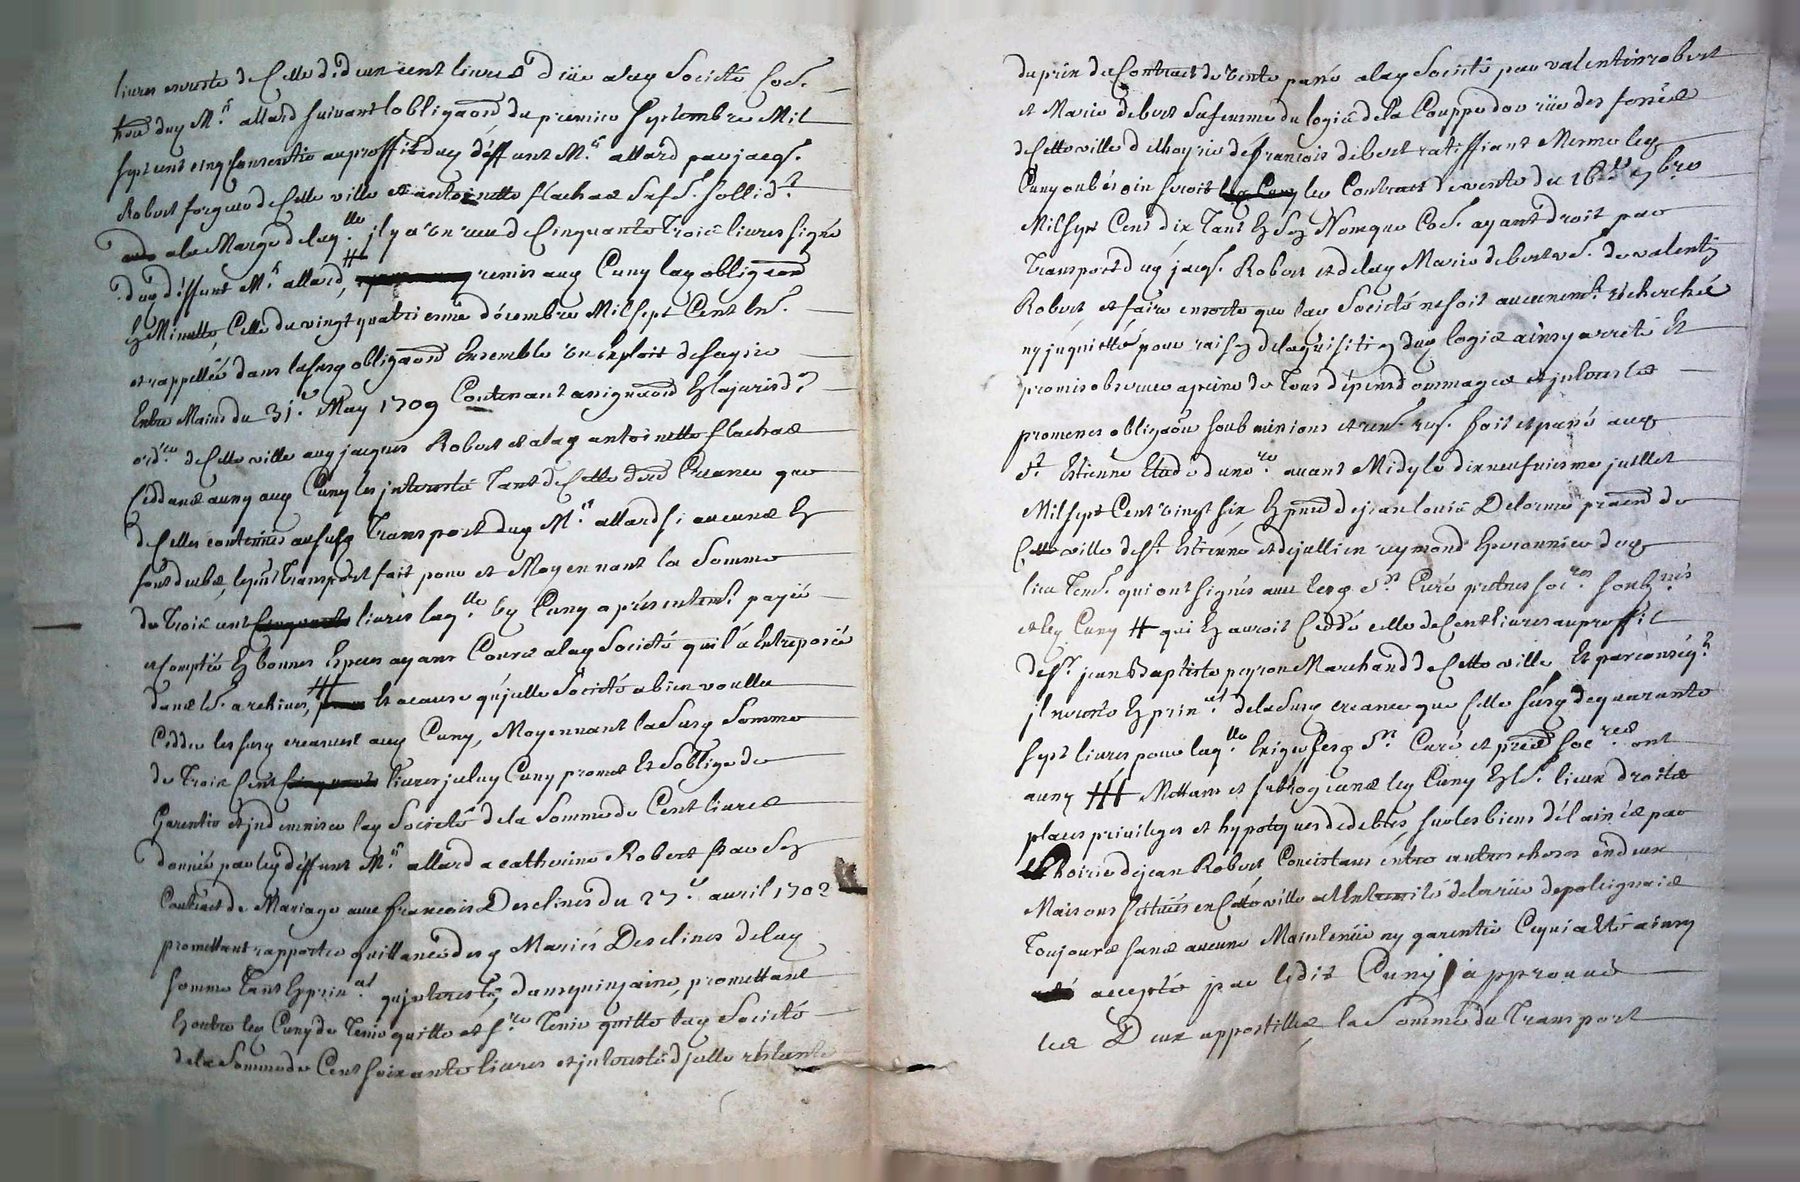 livres en reste de celle de deux cent livres düe a lad Société
dud Mr. allard suivant lobliga͞on du premier septembre Mil
sept cent cinq consentie au proffit dud déffunt Mr. allard par jacq.
Robert forgeur de cette ville et antoinette flachat sa f. sollid.
a la Marge de laq.lle il y a un reçu de Cinquante Trois livres signé
dud déffunt Mr. allard, remis aud Cuny lad obliga͞on
En Minutte, Celle du vingt quatrieme décembre Mil sept Cent
et rappellée dans la susd obliga͞on Ensemble un Exploit de saysie
Entre Mains du 31.e May 1709 Contenant assigna͞on En la jurisd.
ord.re de cette ville aud jacques Robert et a lad antoinette flachat
Ceddant aussy aud Cuny les interests Tant de cette d. Creance que
de celles contenües au susd Transport dud Mr. allard si aucuns En
sont deubs, le p͞nt Transport fait pour et Moyennant la Somme
de Trois cent livres laq.lle led Cuny a présentem.t payée
et comptée En bonnes Especes ayant Cours a lad Société qui l'a Entreposée
dans les archives, Et a cause qu'jcelle Société a bien voullu
Cedder les susd creances aud Cuny, Moyennant la susd Somme
de Trois Cent livres jceluy Cuny promet Et s'oblige de
Garentir et indemniser lad Société de la Somme de Cent livres
donnée par led déffunt Mr. allard a catherine Robert par son
Contract de Mariage avec françois Desclines du 27.e avril 1702
promettant rapporter quittance desd Mariés Desclines de lad
somme Tant En prin.al qu'interests, dans quinzaine, promettant
En outre led Cuny de Tenir quitte et f.re Tenir quitte lad Société
de la Somme de Cent soixante livres et interests d'jcelle restante
du prix du Contract de vente passé a lad Société par valentin robert
et Marie debert sa femme du logis de la Couppe dor rüe des fossés
de cette ville d'elhoyrie de françois debert ratiffiant Mesme led
Cuny en besoin seroit le Contract de vente du 16.e 9bre
Mil sept Cent dix Tant En son Nom que Co͞e ayant droit par
Transport dud jacq. Robert et de lad Marie debert ve. de valentin
Robert, et faire ensorte que lad Société ne soit aucunem.t recherchée
ny jnquiettée pour raison de laquisition dud logis ainsy arreté Et
promis observer a peine de Tous dépens dommages et interests
promesses obliga͞on soubmissions et ren. fait et passé aud
St. Estienne Etude du no.re avant Midy le dix neufviesme juillet
Mil sept Cent vingt six En pnce de jean louis Delorme de
Cette ville de St. Estienne et de jullien reymond Eperonnier dud
lieu Tem. qui ont signés avec lesd Srs Curé pretres soc.res soubz.nés
et led Cuny # qui En auroit Ceddé celle de Cent livres au proffit
de Sr. jean Baptiste peyron Marchand de Cette ville Et par conseq.t
jl ne reste En prin.al de la susd creance que celle susd de quarante
sept livres pour laq.lle lesd Srs. Curé et soc.res ont
aussy ### Mettant et subrogeant led Cuny En ls. lieux droits
places privileges et hypoteques de debtes sur les biens délaissés par
lhoirie de jean Robert Concistans entre autres choses en deux
Maisons scittuées en Cette ville a l'Extremité de la rüe de poleignais
Toujours sans aucune Maintenüe ny garentie Ce qui a été ainsy
accepté par ledit Cuny / approuvé
les Deux appostilles la Somme du Transport